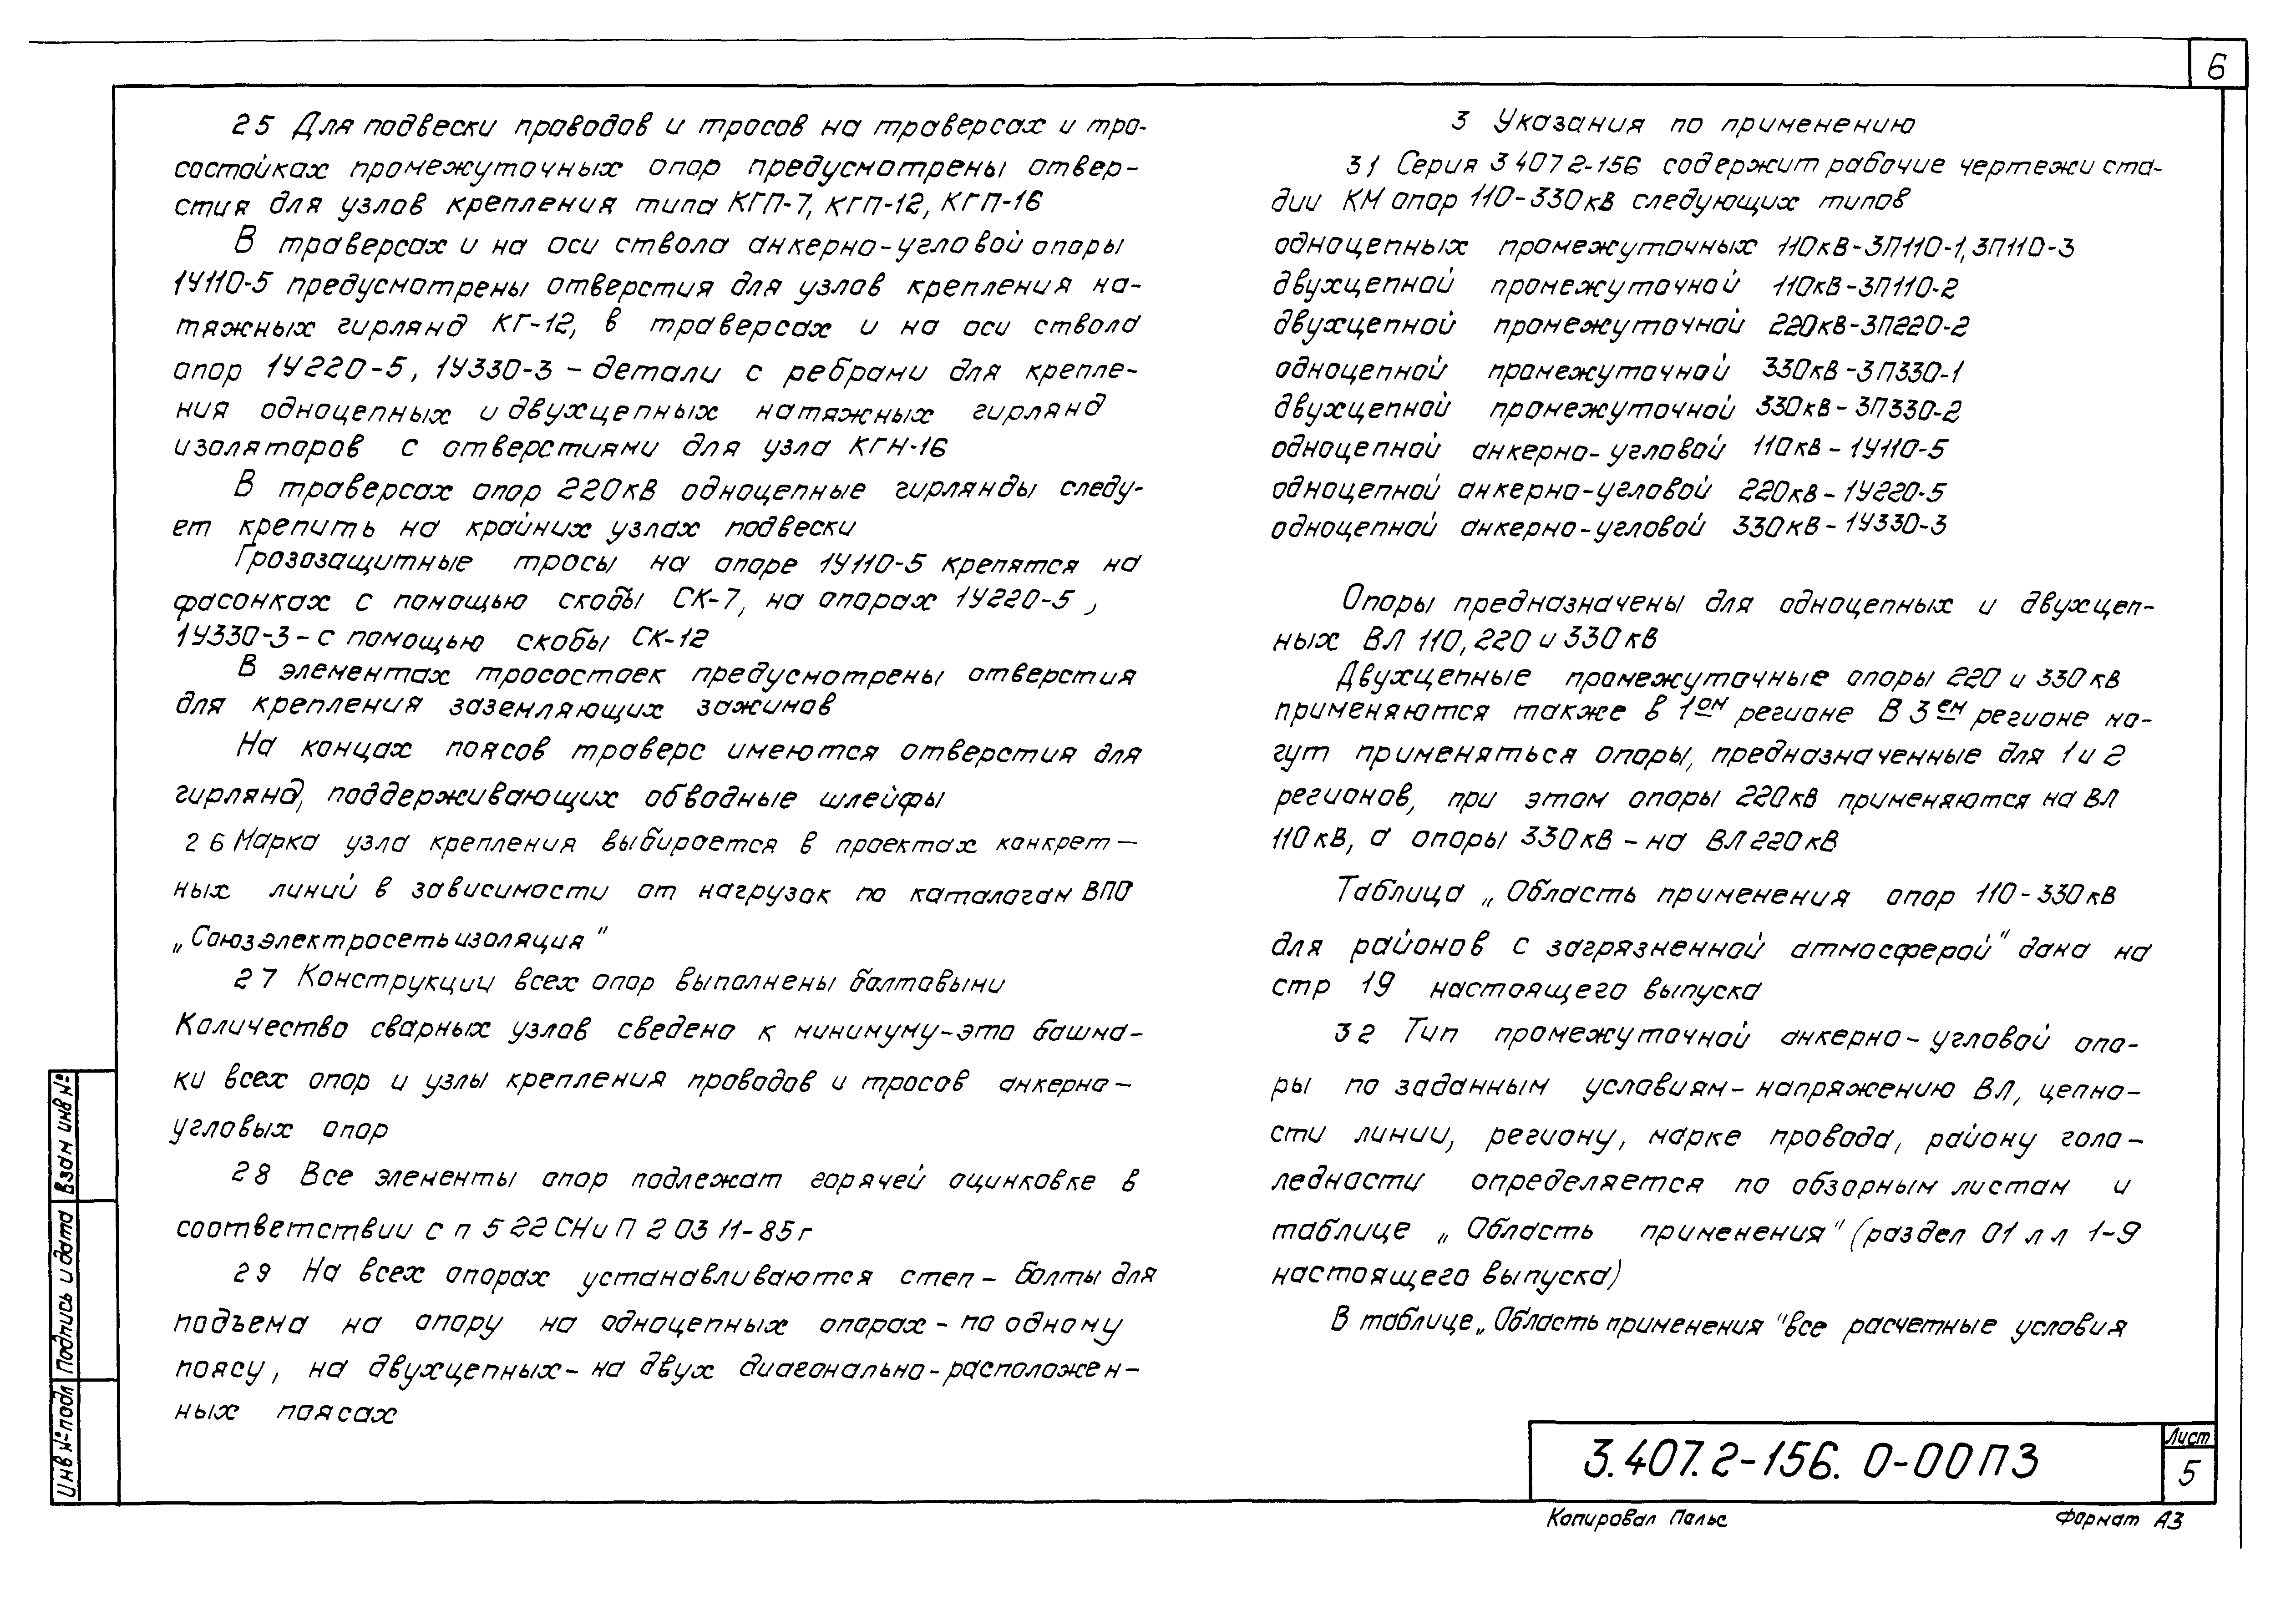 6
25 Для подвески проводов и тросов на траверсах и тро-
состойках промежуточных опор предусмотрены отвер-
стия для узлов крепления типа КГП-7, КГП-12, КГП-16
В траверсах и на оси ствола анкерно-угловой опоры
1У110-5 предусмотрены отверстия для узлов крепления на-
тяжных гирлянд КГ-12, в траверсах и на оси ствола
опор 1У220-5, 1У330-3 - детали с ребрами для крепле-
ния одноцепных и двухцепных натяжных гирлянд
изоляторов с отверстиями для узла КГН-16
В траверсах опор 220кВ одноцепные гирлянды следу-
ет крепить на крайних узлах подвески
Грозозащитные тросы на опоре 1У110-5 крепятся на
фасонках с помощью скобы СК-7, на опорах 1У220-5,
1У330-3 - с помощью скобы СК-12
В элементах тросостоек предусмотрены отверстия
для крепления заземляющих зажимов
На концах поясов траверс имеются отверстия для
гирлянд, поддерживающих обводные шлейфы
26 Марка узла крепления выбирается в проектах конкрет-
ных линий в зависимости от нагрузок по каталогам ВПО
„Союзэлектросетьизоляция"
27 Конструкции всех опор выполнены болтовыми
Количество сварных узлов сведено к минимуму-это башма-
ки всех опор и узлы крепления проводов и тросов анкерно-
угловых опор
28 Все элементы опор подлежат горячей оцинковке в
соответствии с п 5 22 СНиП 2 03 11-85г
29 На всех опорах устанавливаются степ-болты для
подъема на опору на одноцепных опорах-по одному
поясу, на двухцепных-на двух диагонально-расположен-
ных поясах
3 Указания по применению
31 Серия 3 407 2-156 содержит рабочие чертежи ста-
дии КМ опор 110-330кВ следующих типов
одноцепных промежуточных 110кВ-3П110-1, 3П110-3
двухцепной промежуточной 110кВ-3П110-2
двухцепной промежуточной 220кВ-3П220-2
одноцепной промежуточной 330кВ-3П330-1
двухцепной промежуточной 330кВ-3П330-2
одноцепной анкерно-угловой 110кВ-1У110-5
одноцепной анкерно-угловой 220кВ-1У220-5
одноцепной анкерно-угловой 330кВ-1У330-3
Опоры предназначены для одноцепных и двухцеп-
ных ВЛ 110, 220 и 330кВ
Двухцепные промежуточные опоры 220 и 330кВ
применяются также в 1ом регионе В 3ем регионе мо-
гут применяться опоры, предназначенные для 1 и 2
регионов, при этом опоры 220кВ применяются на ВЛ
110кВ, а опоры 330кВ - на ВЛ 220кВ
Таблица „Область применения опор 110-330кВ
для районов с загрязненной атмосферой" дана на
стр 19 настоящего выпуска
32 Тип промежуточной анкерно-угловой опо-
ры по заданным условиям-напряжению ВЛ, цепно-
сти линии, региону, марке провода, району голо-
ледности определяется по обзорным листам и
таблице „Область применения" (раздел 01 лл 1-9
настоящего выпуска)
В таблице „Область применения" все расчетные условия
Инв № подл Подпись и дата Взам инв №
3.407.2-156. 0-00ПЗ
Лист
5
Копировал Пальс
Формат А3